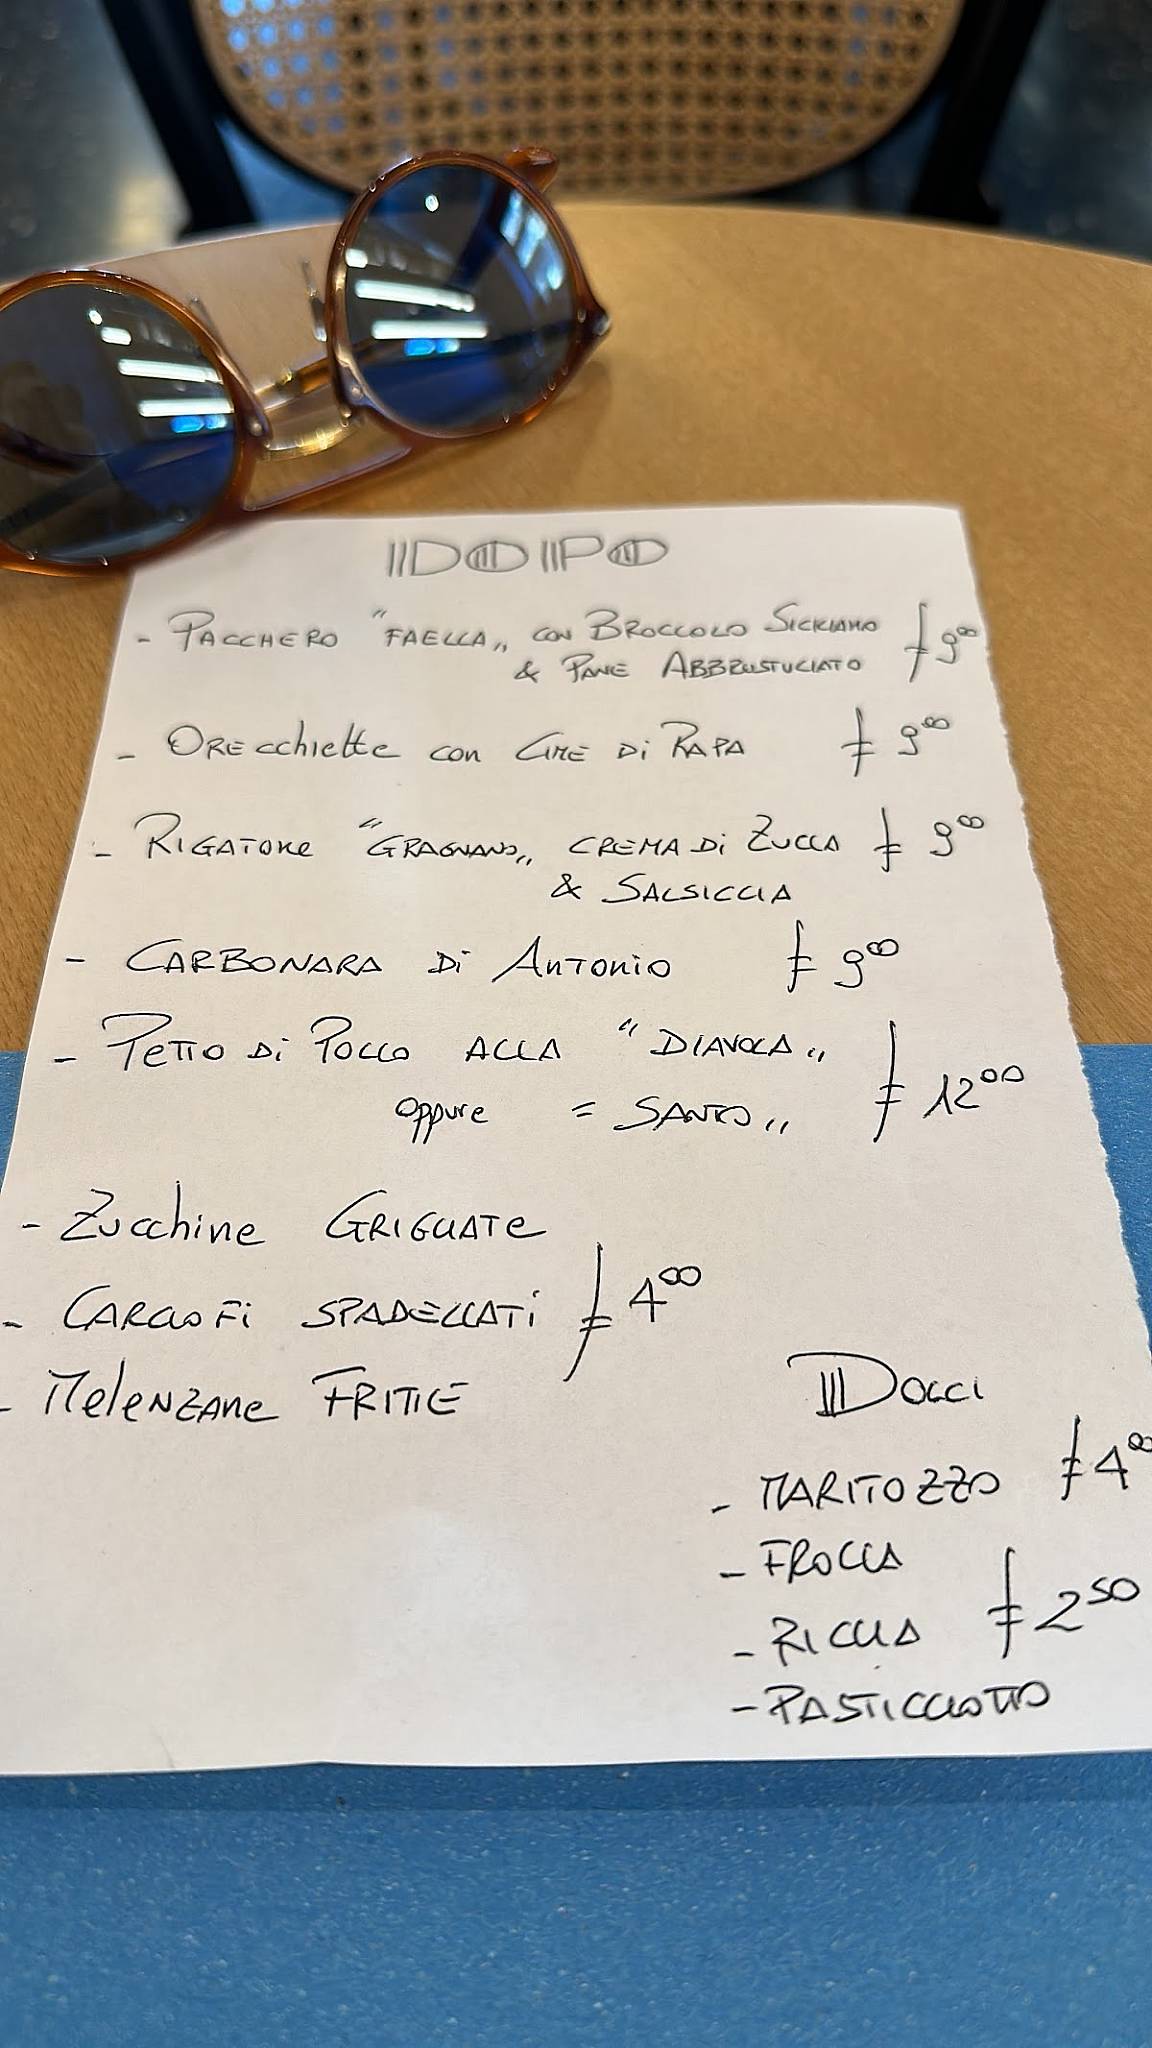 DOPO
- PACCHERO "FAELLA„ con BROCCOLO SICILIANO 9⁰⁰
& PANE ABBRUSTULIATO
- ORECchiette con CIME Di RAPA 9⁰⁰
- RIGATONE "GRAGNANO„ CREMA Di ZUCCA 9⁰⁰
& SALSICCIA
- CARBONARA Di ANTONIO 9⁰⁰
- PETTO Di POLLO ALLA "DIAVOLA„
oppure = SANTO„ 12⁰⁰
- Zucchine GRIGLIATE
- CARCIOFi SPADELLATi 4⁰⁰
- MelENZANe FRITTE
DOLCI
- MARITOZZO 4⁰⁰
- FROLLA
- RICCIA 2⁵⁰
- PASTICCIOTTO